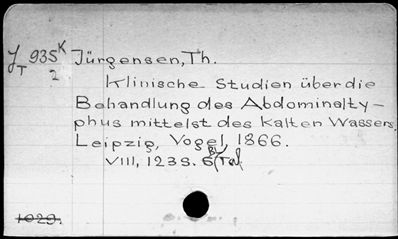 J 935 K Jürgensen, Th.
T 2
Klinische Studien über die
Behandlung des Abdominalty-
phus mittelst des kalten Wassers.
Leipzig, Vogel 1866.
VIII, 123 S. 6 Bl. Taf.
1029.